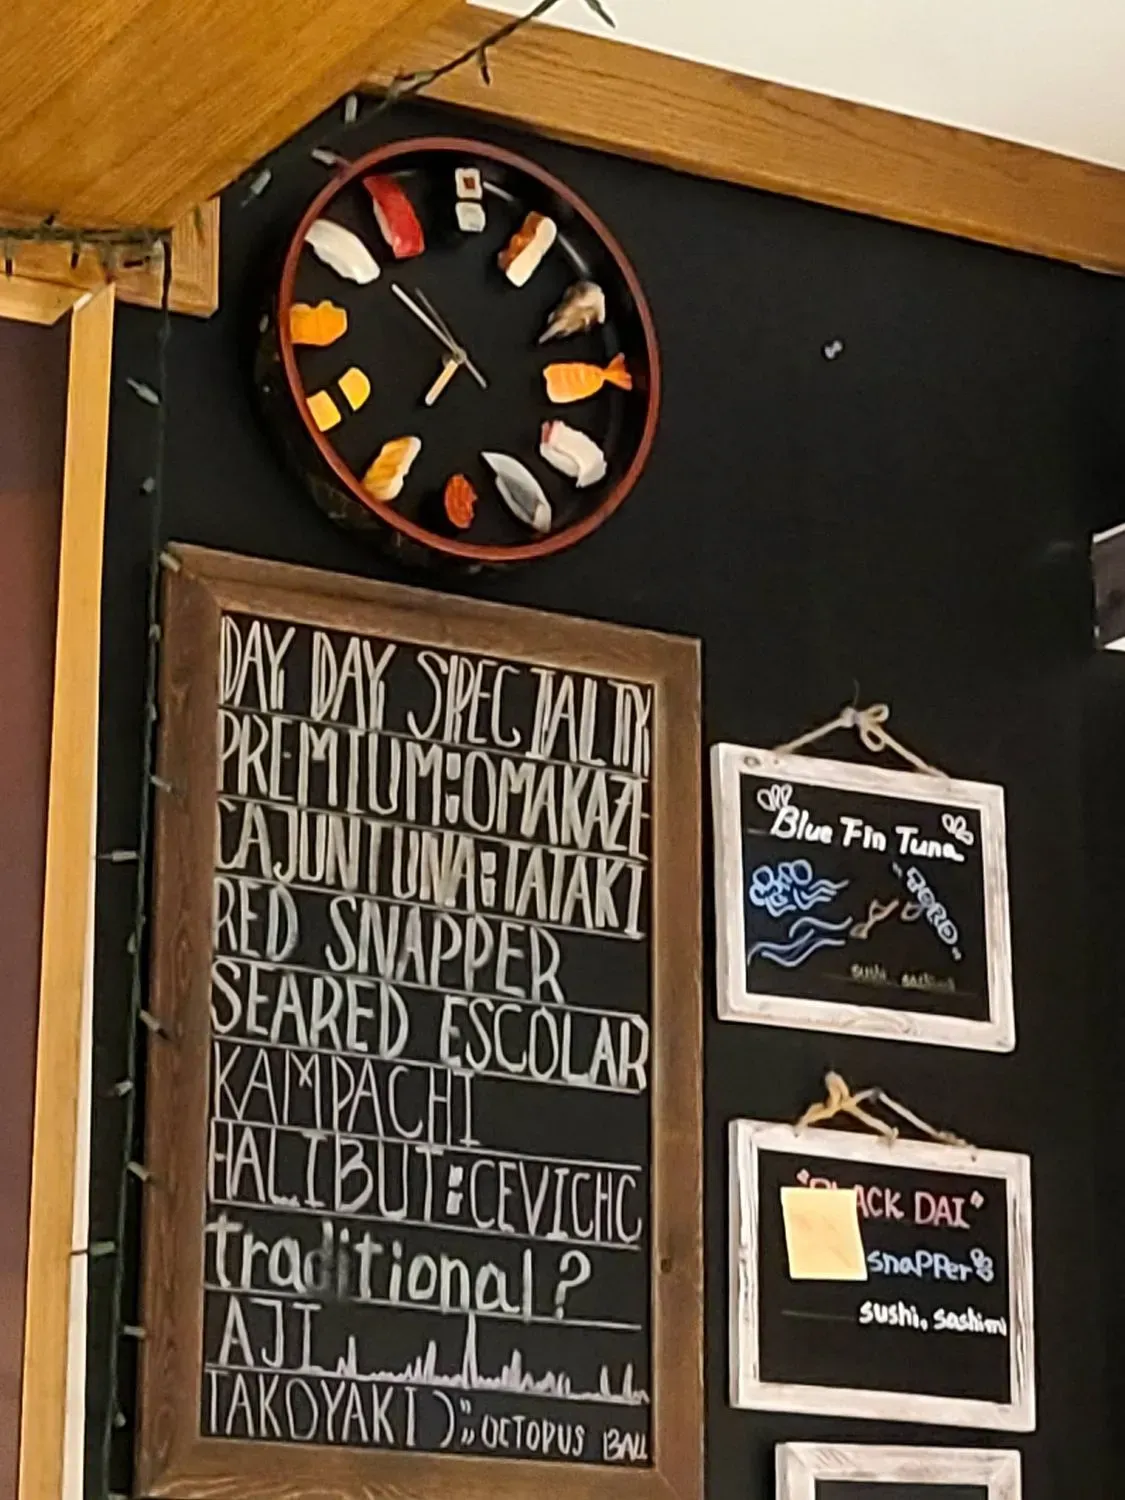 DAY DAY SPECIALITY
PREMIUM:OMAKAZE
CAJUN TUNA:TATAKI
RED SNAPPER
SEARED ESCOLAR
KAMPACHI
HALIBUT:CEVICHC
traditional?
AJI
TAKOYAKI):; OCTOPUS BALL
Blue Fin Tuna
"TORO"
sushi, sashimi
"BLACK DAI"
snapper
sushi, sashimi